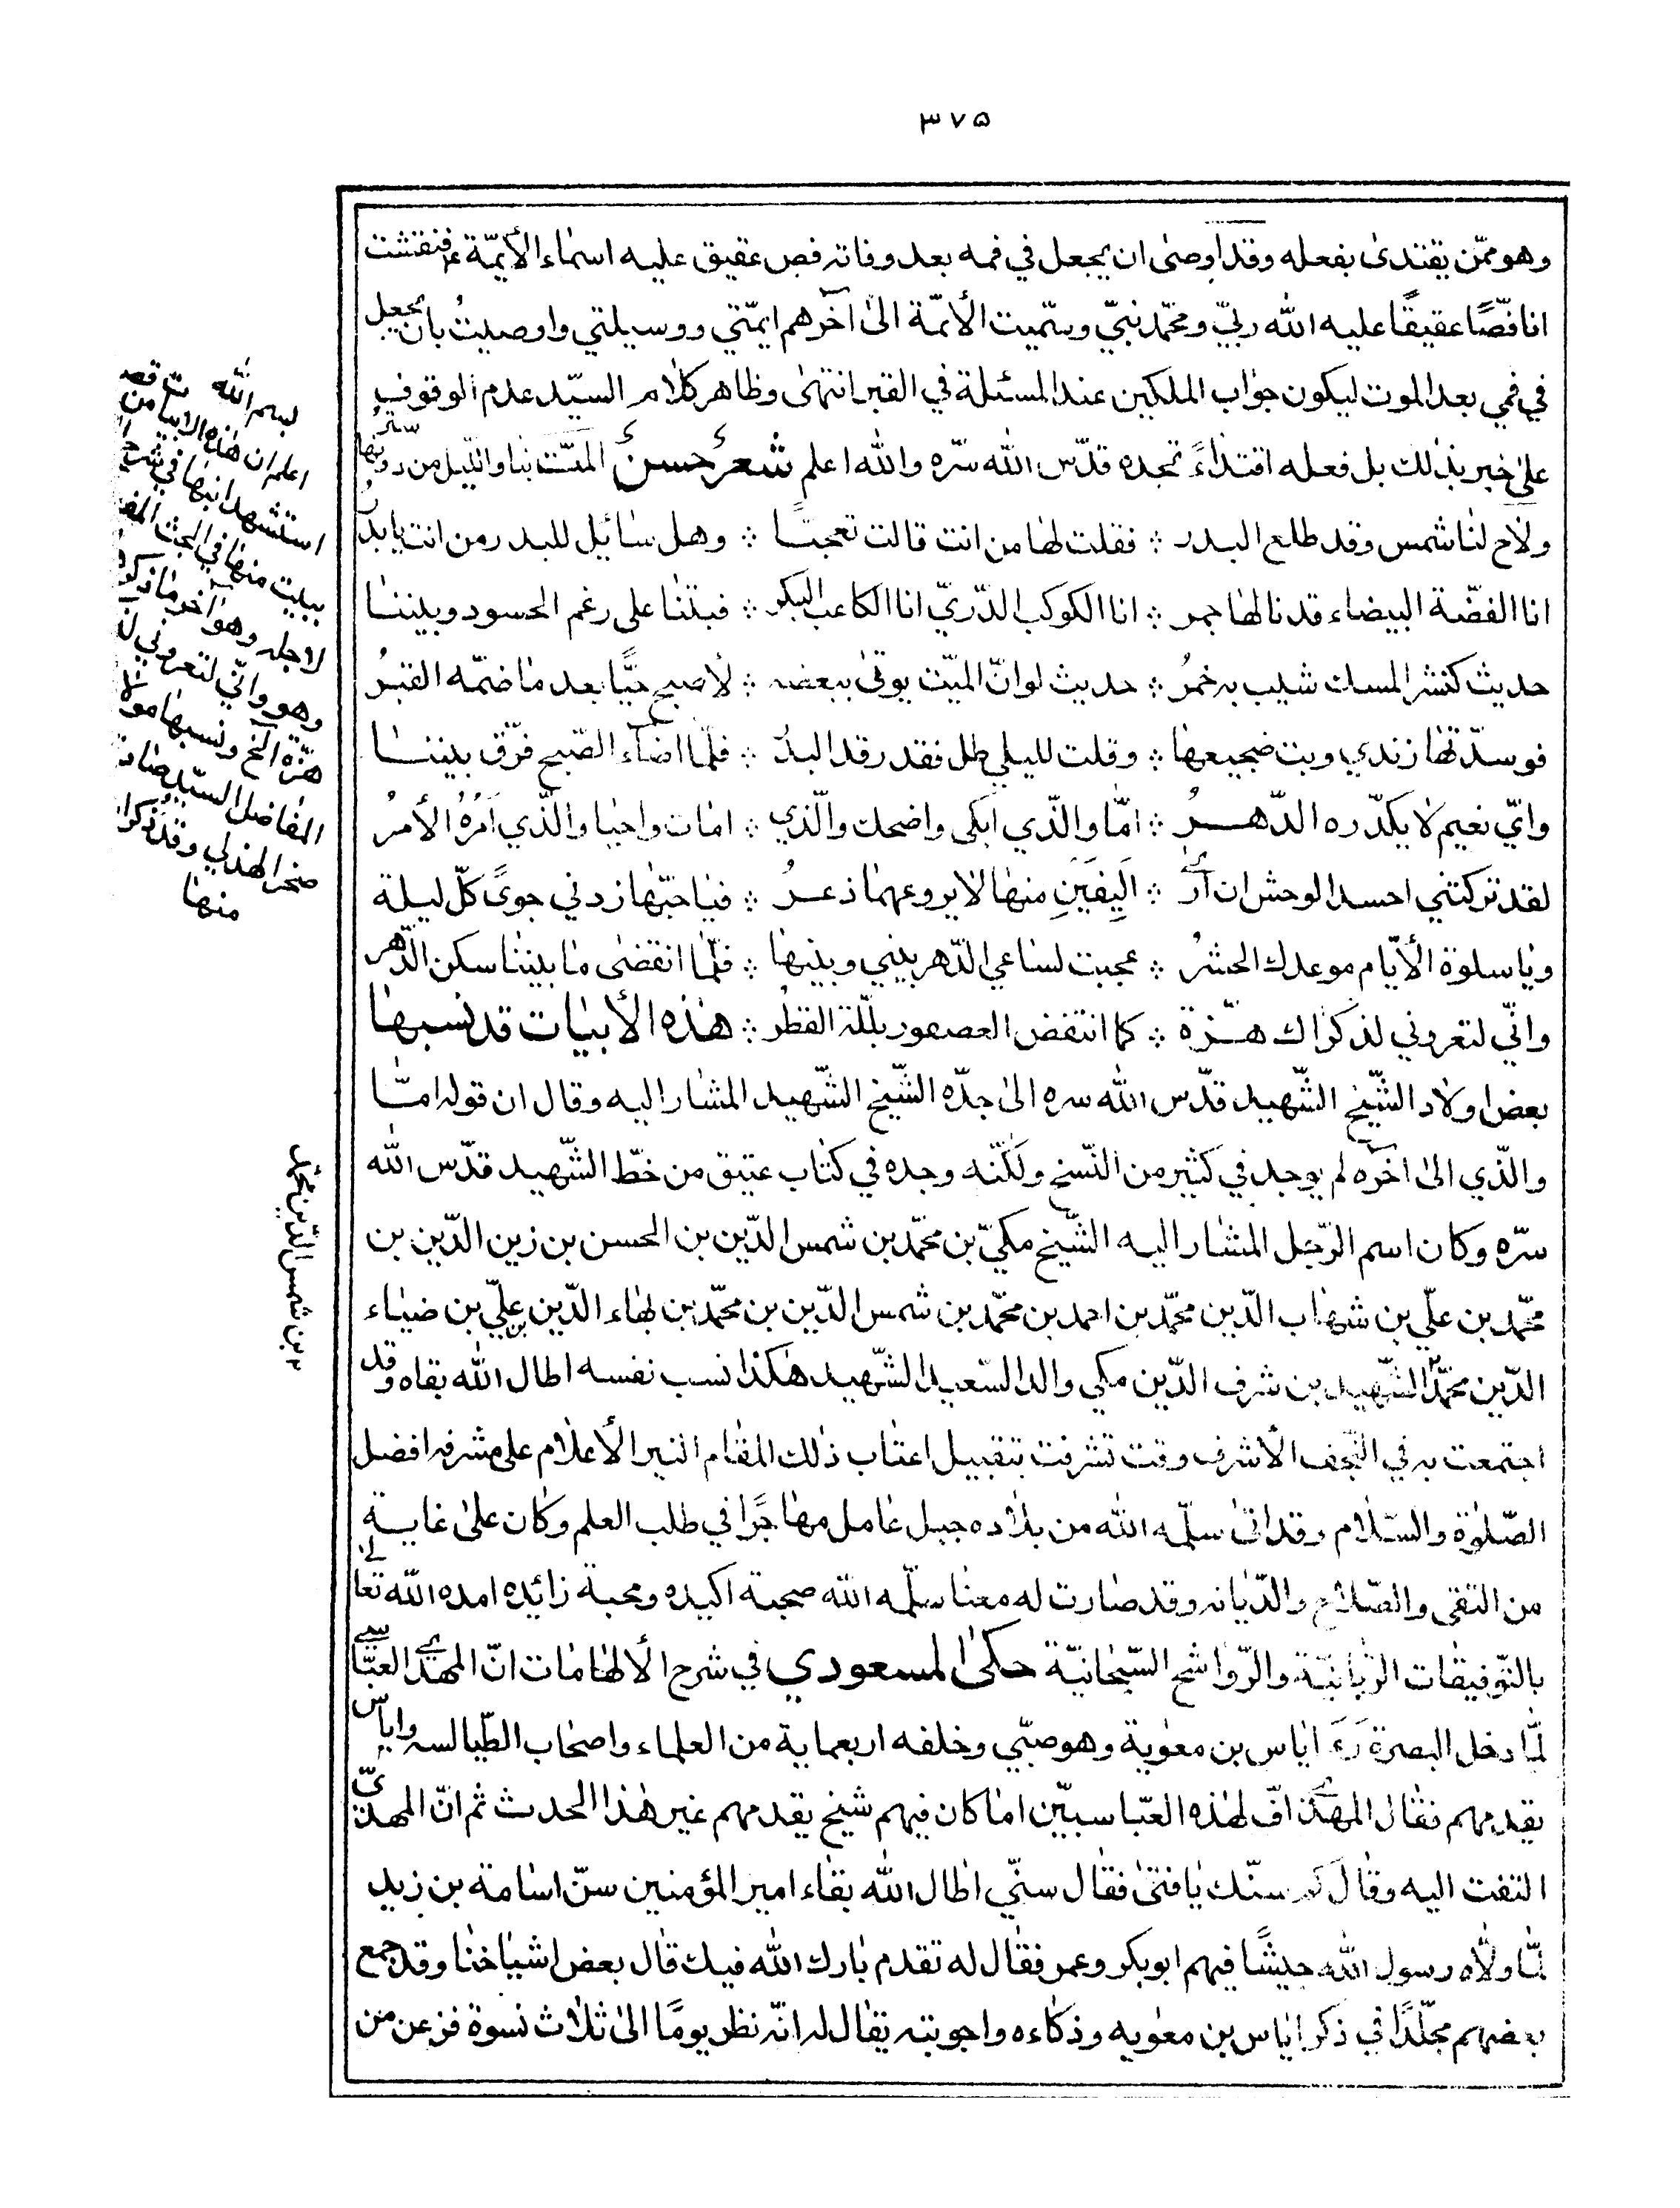 ٣٧٥
وهو ممّن يقتدىٰ بفعله وقد اوصىٰ ان يجعل في فمه بعد وفاته فص عقيق عليه اسماء الأيمّة ع فنقشت
انا فصًّا عقيقًا عليه الله ربيّ ومحمّد نبيّ وسمّيت الأئمّة الىٰ آخرهم ايمّتي ووسيلتي واوصيتُ بان يجعل
في فمي بعد الموت ليكون جواب الملكين عند المسئلة في القبر انتهىٰ وظاهر كلام السيّد عدم الوقوف
علىٰ خبر بذلك بل فعله اقتداءً بجده قدّس الله سرّه والله اعلم شعرٌ حسنٌ المّت بنا والليل من دونها ستر
ولاح لنا شمس وقد طلع البدر ⁘ فقلت لها من انت قالت تعجبًا ⁘ وهل سائيل للبدر من انت يا بدرُ
انا الفضّة البيضاء قد نالها جمر ⁘ انا الكوكب الدّريّ انا الكاعب البكر ⁘ فبتنا على رغم الحسود وبيننا
حديث كنشر المسك شيب به خمرُ ⁘ حديث لو انّ الميّت يوقىٰ ببعضه ⁘ لأصبح حيًّا بعد ما ضمّه القبرُ
فوسدّتها زندي وبت ضجيعها ⁘ وقلت لليلي طل فقد رقد البدُ ⁘ فلمّا اضآء الصّبح فرّق بيننا
وايّ نعيم لا يكدّره الدّهرُ ⁘ امّا والّذي ابكى واضحك والّذي ⁘ امات واحيا والّذي اَمرُهُ الأمرُ
لقد تركتني احسد الوحش ان ارىٰ ⁘ اَلِيفَينِ منها لا يروعهما ذعرُ ⁘ فيا حبّها زدني جوىً كلّ ليلة
ويا سلوة الأيّام موعدك الحشرُ ⁘ عجبت لساعي الدّهر بيني وبينها ⁘ فلمّا انقضىٰ ما بيننا سكن الدّهر
وانّي لتعروني لذكراك هزّة ⁘ كما انتفض العصفور بللّه القطرُ ⁘ هٰذه الأبيات قد نسبها
بعض اولاد الشّيخ الشّهيد قدّس الله سره الىٰ جدّه الشّيخ الشّهيد المشار اليه وقال ان قوله امّا
والّذي الىٰ آخره لم يوجد في كثير من النّسخ ولكنّه وجده في كتاب عتيق من خطّ الشّهيد قدّس الله
سرّه وكان اسم الرّجل المشار اليه الشّيخ مكيّ بن محمّد بن شمس الدّين بن الحسن بن زين الدّين بن
محمّد بن علّي بن شهاب الدّين محمّد بن احمد بن محمّد بن شمس الدّين بن محمّد بن بهاء الدّين بن علّي بن ضياء
الدّين محمّد الشّهيد بن شرف الدّين مكي والد السّعيد الشّهيد هكذا نسب نفسه اطال الله بقاه وقد
اجتمعت به في النّجف الأشرف وقت تشرفت بتقبيل اعتاب ذٰلك المقام النير الأعلام علىٰ مشرفه افضل
الصّلوٰة والسّلام وقد اتىٰ سلّمه الله من بلاده جبل عامل مهاجرًا في طلب العلم وكان علىٰ غاية
من التقى والصّلاح والدّيانه وقد صارت له معنا سلّمه الله صحبة اكيده ومحبة زائيده امده الله تعالىٰ
بالتّوفيقات الرّبانيّة والرّواشح السّبحانيّة حكىٰ المسعودي في شرح الألهامات انّ المهديّ العبّاسي
لمّا دخل البصرة رَءَىٰ اياس بن معٰوية وهو صبّي وخلفه اربعماية من العلماء واصحاب الطّيالسه واياس
يقدمهم فقال المهديّ افّ لهٰذه العبّاسيّين اما كان فيهم شيخ يقدمهم غير هٰذا الحدث ثم انّ المهديّ
التفت اليه وقال كم سنّك يا فتىٰ فقال سنّي اطال الله بقاء امير المؤمنين سنّ اسامة بن زيد
لمّا ولاّه رسول الله جيشًا فيهم ابوبكر وعمر فقال له تقدم بارك الله فيك قال بعض اشياخنا وقد جمع
بعضهم مجلّدًا في ذكر اياس بن معٰويه وذكاءه واجوبته يقال له انّه نظر يومًا الىٰ ثلاث نسوة فزعن من
بسم الله
اعلم ان هذه الابيات من قصيدة
استشهد ابنها في شرح
ببيت منها في البحث المفعول
لاجله وهو آخر ما ذكره
وهو وانّي لتعروني
هزّه الخ ونسبها مولانا
الفاضل السيّد صادق
صخر الهذلي وقد ذكر
منها
٢ بن شمس الدّين محمّد